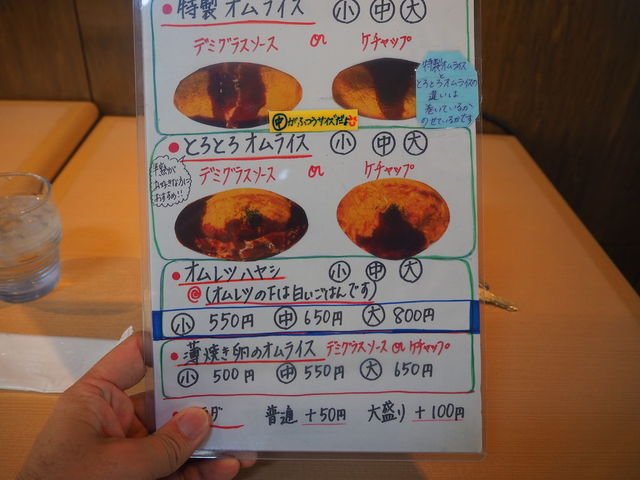 ●特製オムライス 小 中 大
デミグラスソース or ケチャップ
特製オムライス
と
とろとろオムライスの
違いは
巻いているか
のせているかです
中がふつうサイズだよ
●とろとろオムライス 小 中 大
デミグラスソース or ケチャップ
半熟が
お好きな方に
おすすめ!!
●オムレツハヤシ 小 中 大
(オムレツの下は白いごはんです)
小 550円 中 650円 大 800円
●薄焼き卵のオムライス デミグラスソース or ケチャップ
小 500円 中 550円 大 650円
ダ 普通 +50円 大盛り +100円